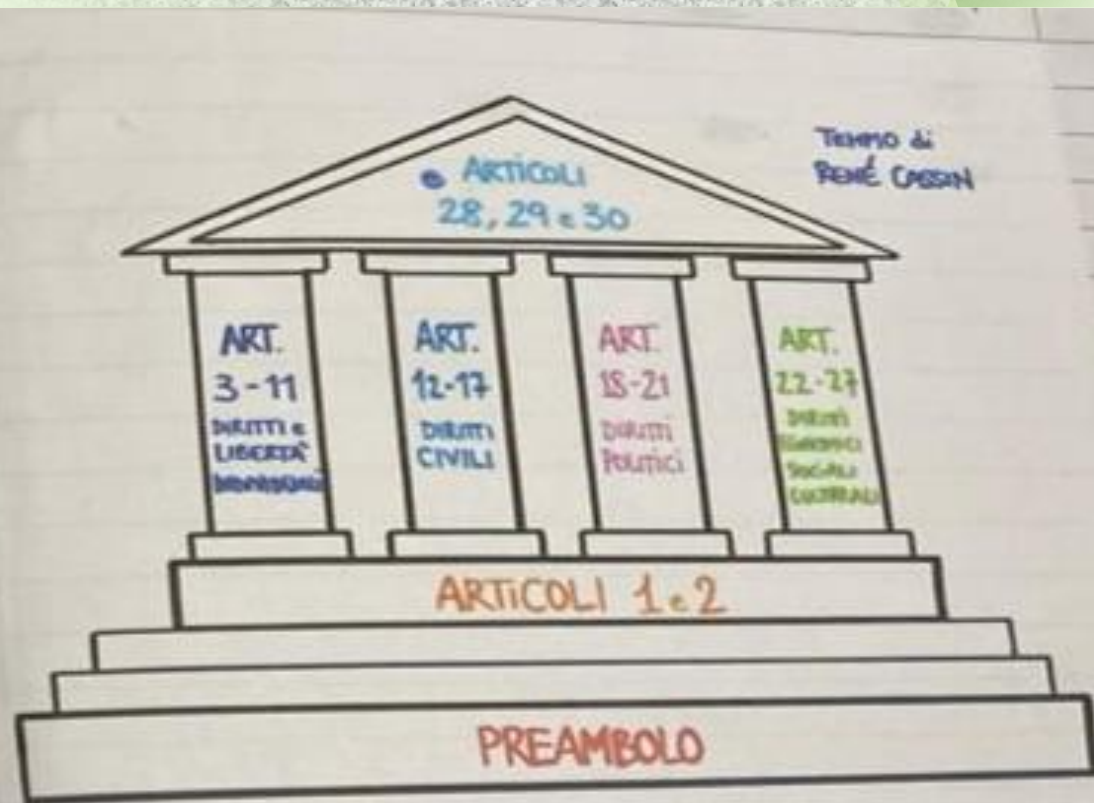 TEMPIO di
RENÉ CASSIN
ARTICOLI
28, 29 e 30
ART.
3-11
DIRITTI e
LIBERTÀ
INDIVIDUALI
ART.
12-17
DIRITTI
CIVILI
ART.
18-21
DIRITTI
POLITICI
ART.
22-27
DIRITTI
ECONOMICI
SOCIALI
CULTURALI
ARTICOLI 1 e 2
PREAMBOLO